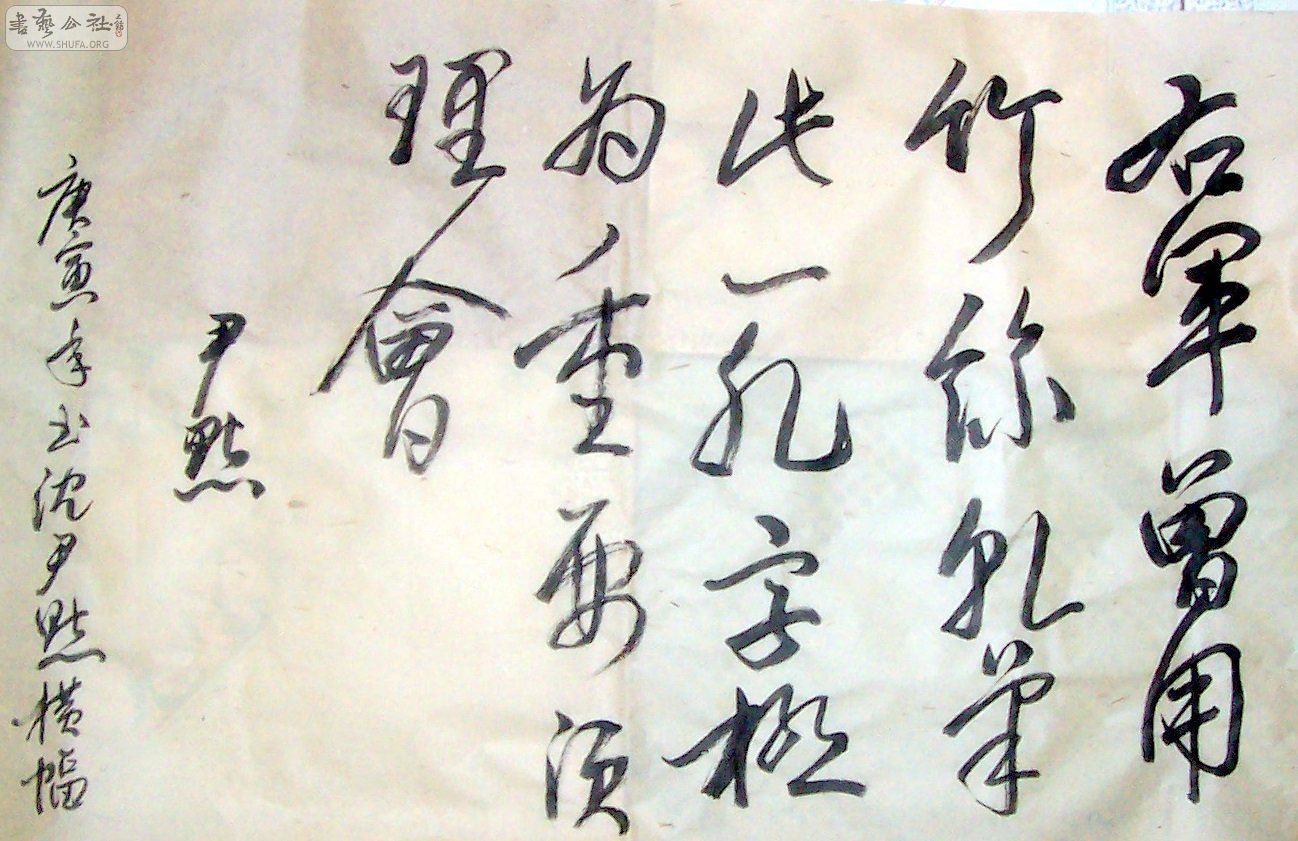 右軍曾用
竹絲乱筆
此一乱字極
為重要須
理會
尹默
庚寅年书沈尹默橫幅
書藝公社
WWW.SHUFA.ORG